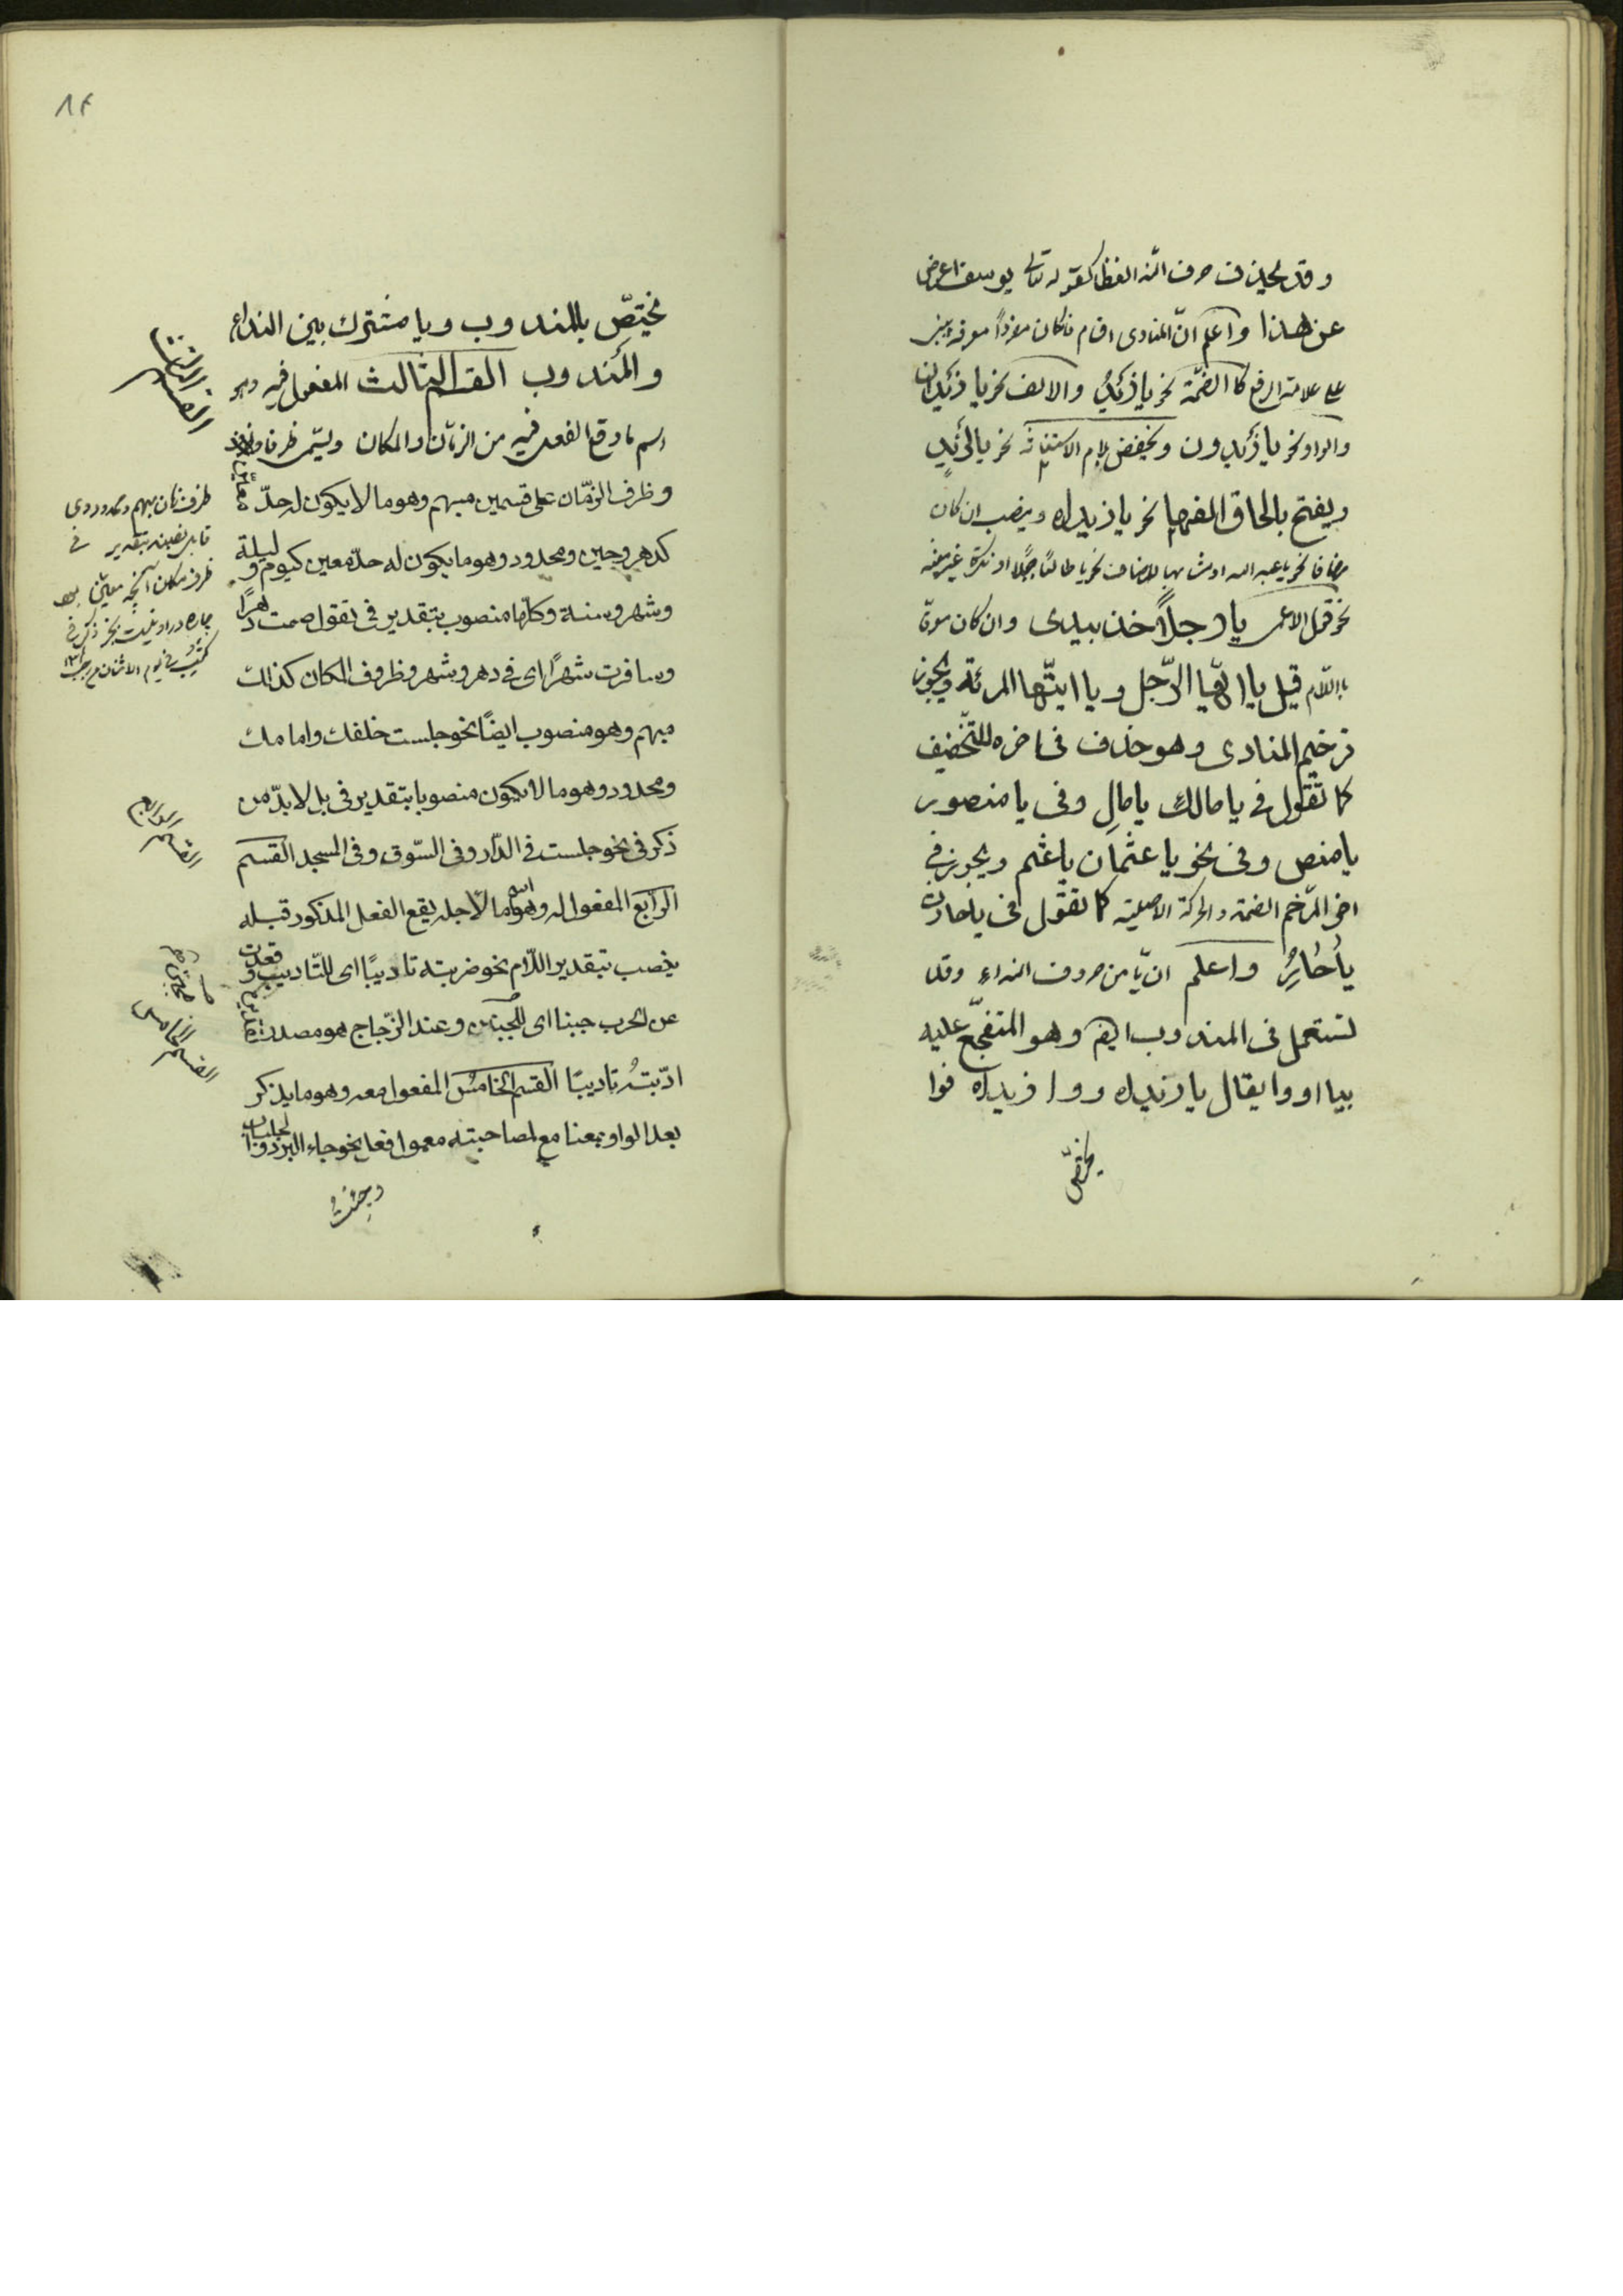 وقد يحذف حرف النداء لفظا كقوله تعالى يوسف اعرض
عن هذا واعلم انّ المنادى اقسام فان كان مفرداً معرفة يبنى
على علامة الرفع كا الضمّة نحو يا زَيْدُ والالف نحو يا زَيْدان
والواو نحو يا زَيْدون ويخفض بلام الاستغاثه نحو يا لَزَيْدٍ
ويفتح بالحاق الفها نحو يا زيداه وينصب ان كان
مضافا نحو يا عبد الله او مشابها للمضاف نحو يا طالعًا جبلًا او نكرة غير معينه
نحو قول الاعمى يا رجلاً خذ بيدى وان كان معرفا
باللّام قيل يا ايّها الرّجل و يا ايتّها المرئة ويجوز
ترخيم المنادى وهو حذف فى اخره للتّخفيف
كما تقول فى يا مالك يا مالِ وفى يا منصور
يا منص وفى نحو يا عثمان يا عثم ويجوز فى
اخر المرّخم الضمة والحركة الاصلية كما تقول فى يا حارث
يا حارُِ واعلم انّ يا من حروف النداء وقد
تستعمل فى المندوب ايضا وهو المتفجّع عليه
بيا او وا يقال يا زيداه و وا زيداه فوا
مختصّ
١٤
مختصّ بالمندوب ويا مشترك بين النداء
والمندوب القسم الثالث المفعول فيه وهو
القسم الثالث
اسم ما وقع الفعل فيه من الزمّان والمكان ويسمّى ظرفا
وظرف الزمّان على قسمين مبهم وهو ما لا يكون له حدّ معيّن
كدهر وحين ومحدود وهو ما يكون له حدّ معين كيوم وليلة
وشهر وسنة وكلّها منصوب بتقدير فى تقول صمت دهرًا
وسافرت شهرًا اى فى دهر وشهر وظروف المكان كذالك
مبهم وهو منصوب ايضًا نحو جلست خلفك وامامك
ومحدود وهو ما لا يكون منصوبا بتقدير فى بل لا بدّ من
ذكر فى نحو جلست فى الدّار وفى السّوق وفى المسجد القسم
الرّابع المفعول له وهو اسم ما لاجله يقع الفعل المذكور قبله
ينصب بتقدير اللّام نحو ضربته تاديبًا اى للتّاديب وقعدت
عن الحرب جبنا اى للجبن وعند الزّجاج هو مصدر تقديره
ادّبتهُ تاديبًا القسم الخامس المفعول معه وهو ما يذكر
بعد الواو بمعنا مع لمصاحبته معمول فعل نحو جاء البرد والجلباب
وجئتُ
ظرف زمان مبهم ومحدودى
قابل نصبند بتقدير فى
ظرف مكان آنچه معيّن بود
چاره در او نيست بجز ذكر فى
القسم الرابع
القسم الخامس